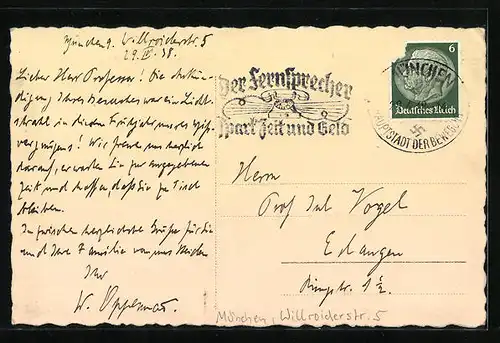 München 9. Willroiderstr. 5
29. IV. 38.
Lieber Herr Professor! Die Ankün-
digung Ihres Besuches war ein Licht-
strahl in diesem Frühjahr unseres Miß-
vergnügens! Wir freuen uns herzlich
darauf, erwarten Sie zur angegebenen
Zeit und hoffen, daß Sie zu Tisch
bleiben.
Inzwischen herzlichste Grüße für Sie
und Ihre Familie von uns beiden
Ihr
W.
Der Fernsprecher
spart Zeit und Geld
6
Deutsches Reich
MÜNCHEN
HAUPTSTADT DER BEWEGUNG
Herrn
Prof Vogel
Erlangen
Ringstr. 1½
München, Willroiderstr. 5